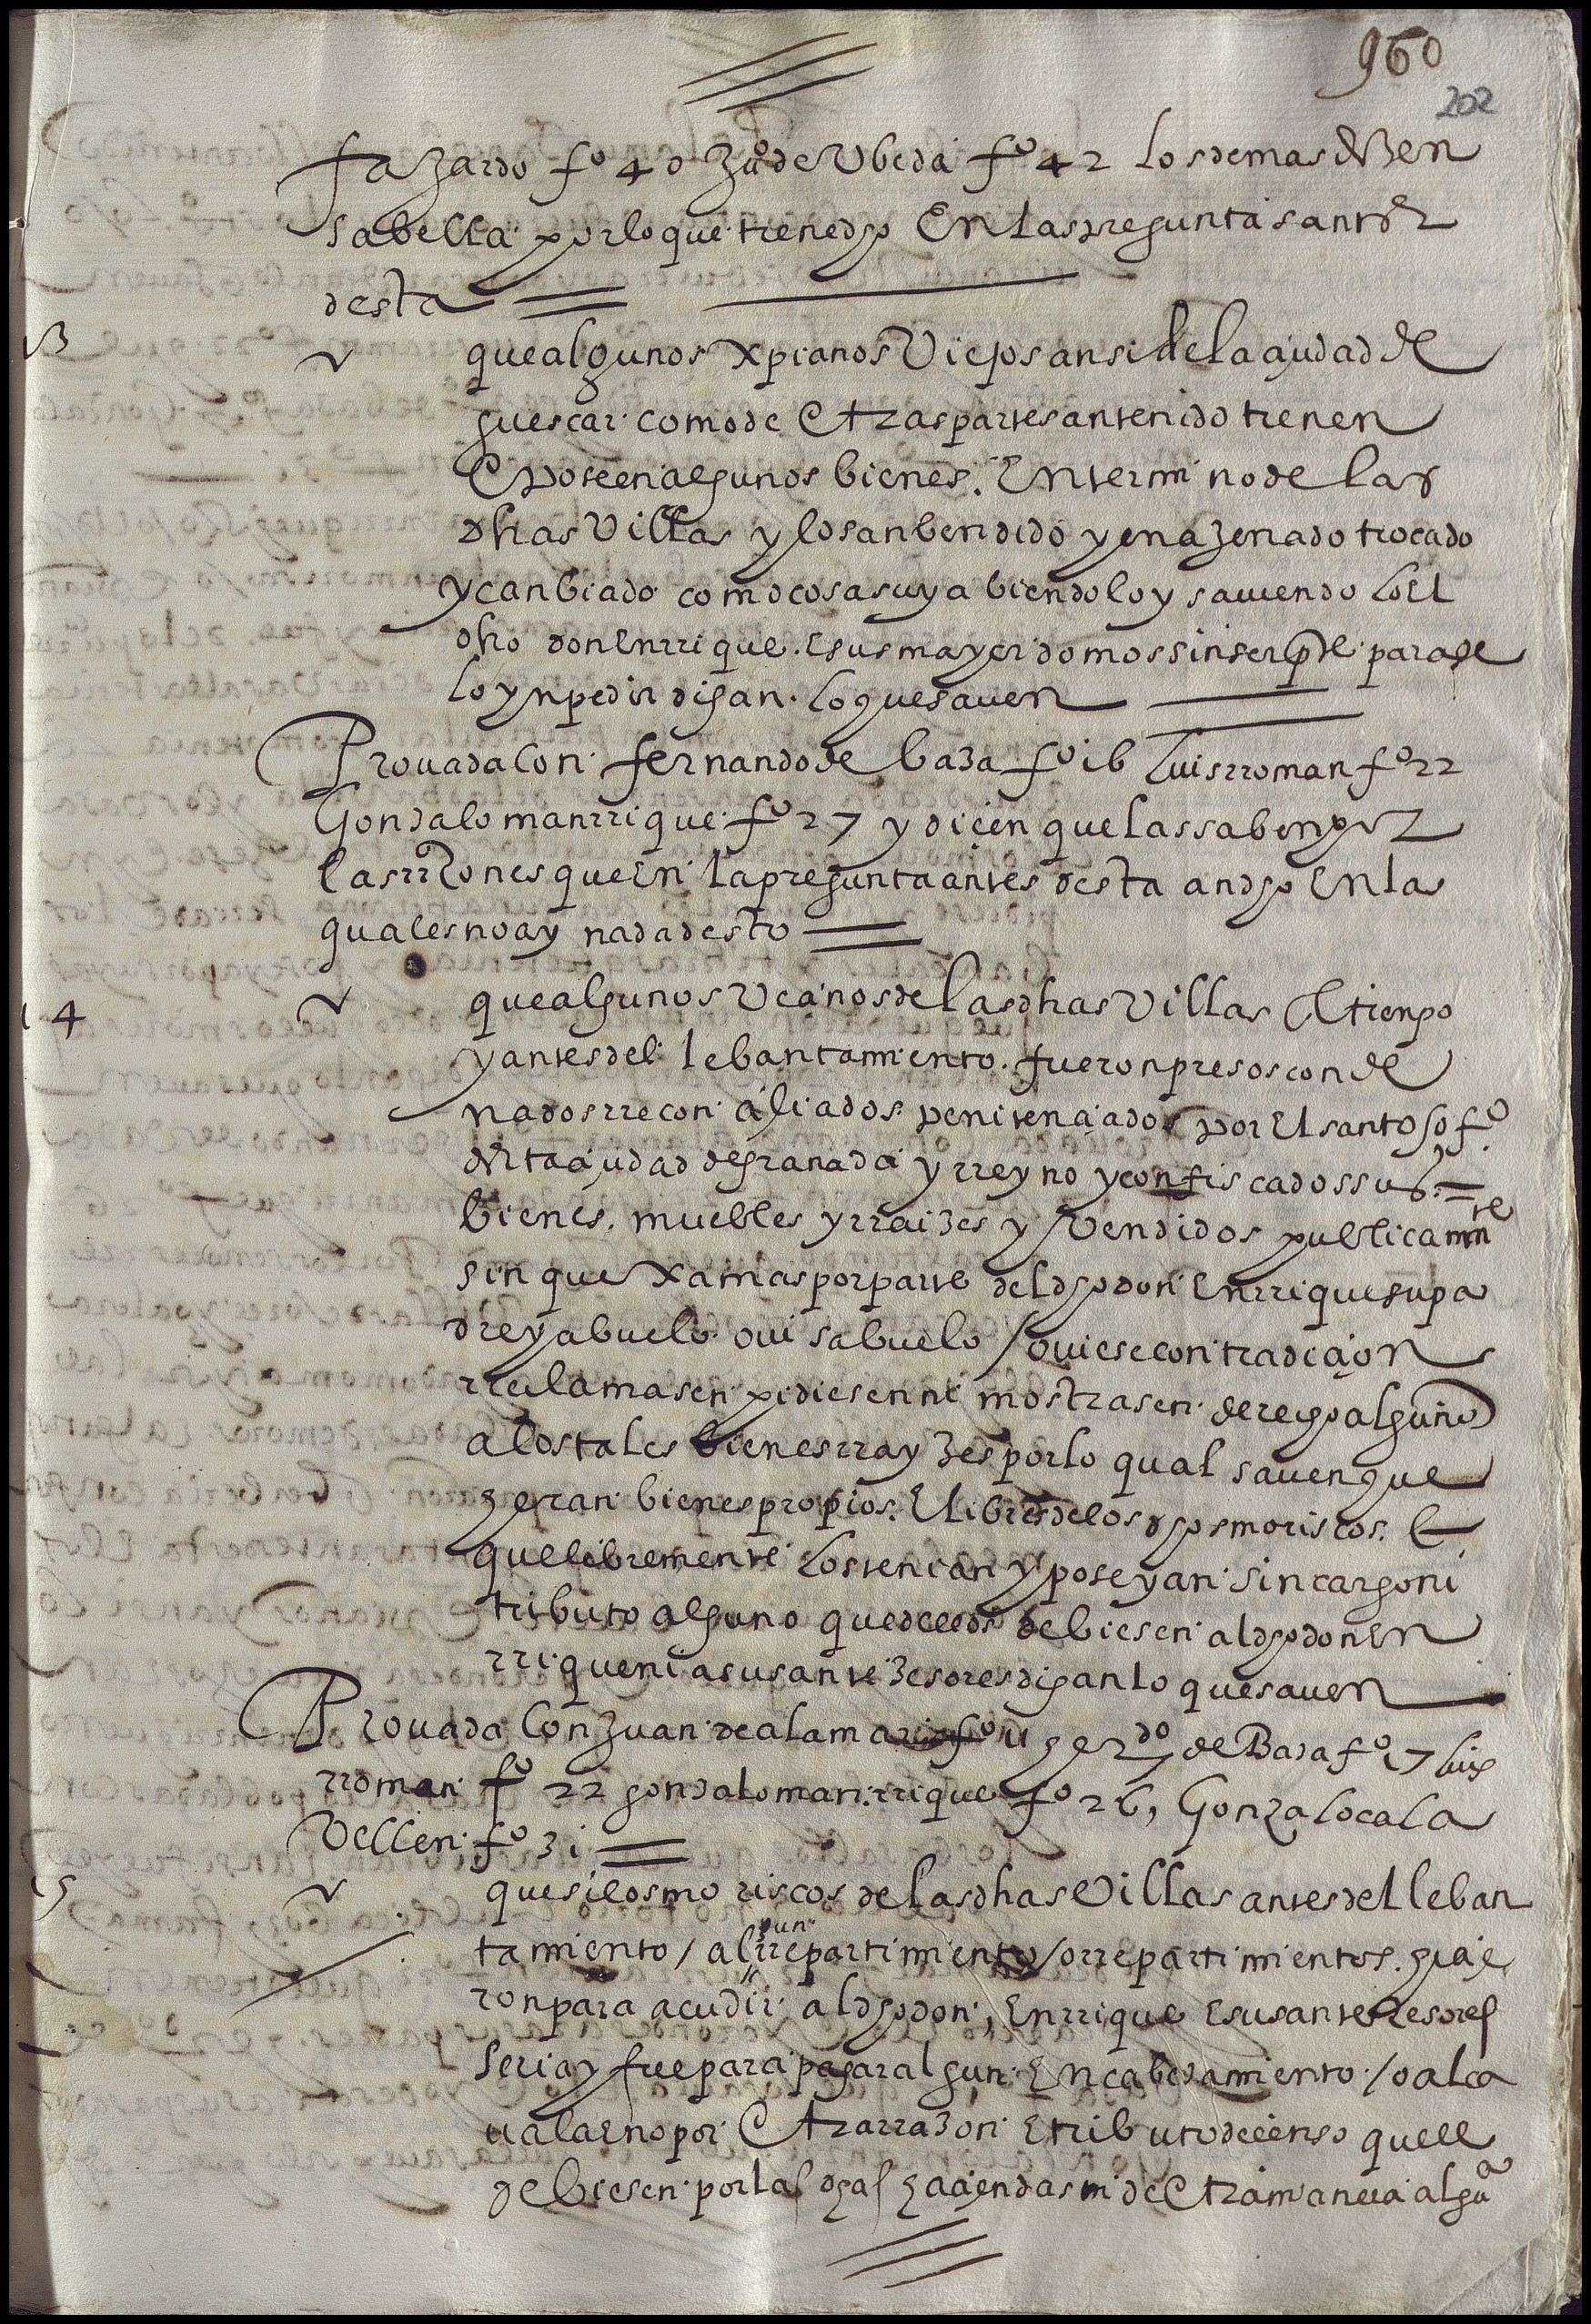 960
202
fazardo fº 40 juº de Ubeda fº 42 los demas dizen
sabella por lo que tiene dho En las preguntas antes
desta
13 que algunos xpianos Viejos ansi de la ciudad de
guescar como de otras partes an tenido tienen
e poseen algunos bienes. En termino de las
dhas Villas y los an bendido y enazenado trocado
y canbiado como cosa suya biendolo y saviendo lo El
dho don Enrrique. E sus mayordomos sin ser pte para se
lo ynpedir digan. lo que saven
Provada Con fernando de baza fº 16 luis rroman fº 22
Gonzalo manrrique fº 27 y dicen que la saben por
las rrazones que En la pregunta antes desta an dho En las
quales no ay nada desto
14 que algunos Vecinos de las dhas Villas Al tienpo
y antes del lebantamiento. fueron presos conde
nados rreconciliados penitenciados por El santo offº
desta ciudad de granada y rreyno y confiscados sus
bienes. muebles y rraizes y Vendidos publicamnte
sin que xamas por parte del dho don Enrrique su pa
dre y abuelo o visabuelo / oviese contradicion
rreclamasen pidiesen ni mostrasen. derecho alguno
a los tales bienes rrayzes por lo qual saven que
heran bienes propios. E libres de los dhos moriscos. E
que libremente los tenian y poseyan sin cargo ni
tributo alguno que de ellos debiesen al dho don En
rrique ni a sus antezesores digan lo que saven
Provada Con Juan de alamari fº 11 herdº de Baza fº 17 luis
rroman fº 22 gonzalo manrrique fº 26, Gonzalo cala
Vellen fº 31
15 que si los moriscos de las dhas Villas antes del leban
tamiento / algun rrepartimiento / o rrepartimientos. hicie
ron para acudir al dho don, Enrrique E sus antezesores
seria y fue para pagar algun Encabezamiento / o alca
vala E no por otra rrazon E tributo de censo que le
debiesen por las dhas haciendas ni de otra manera alguª